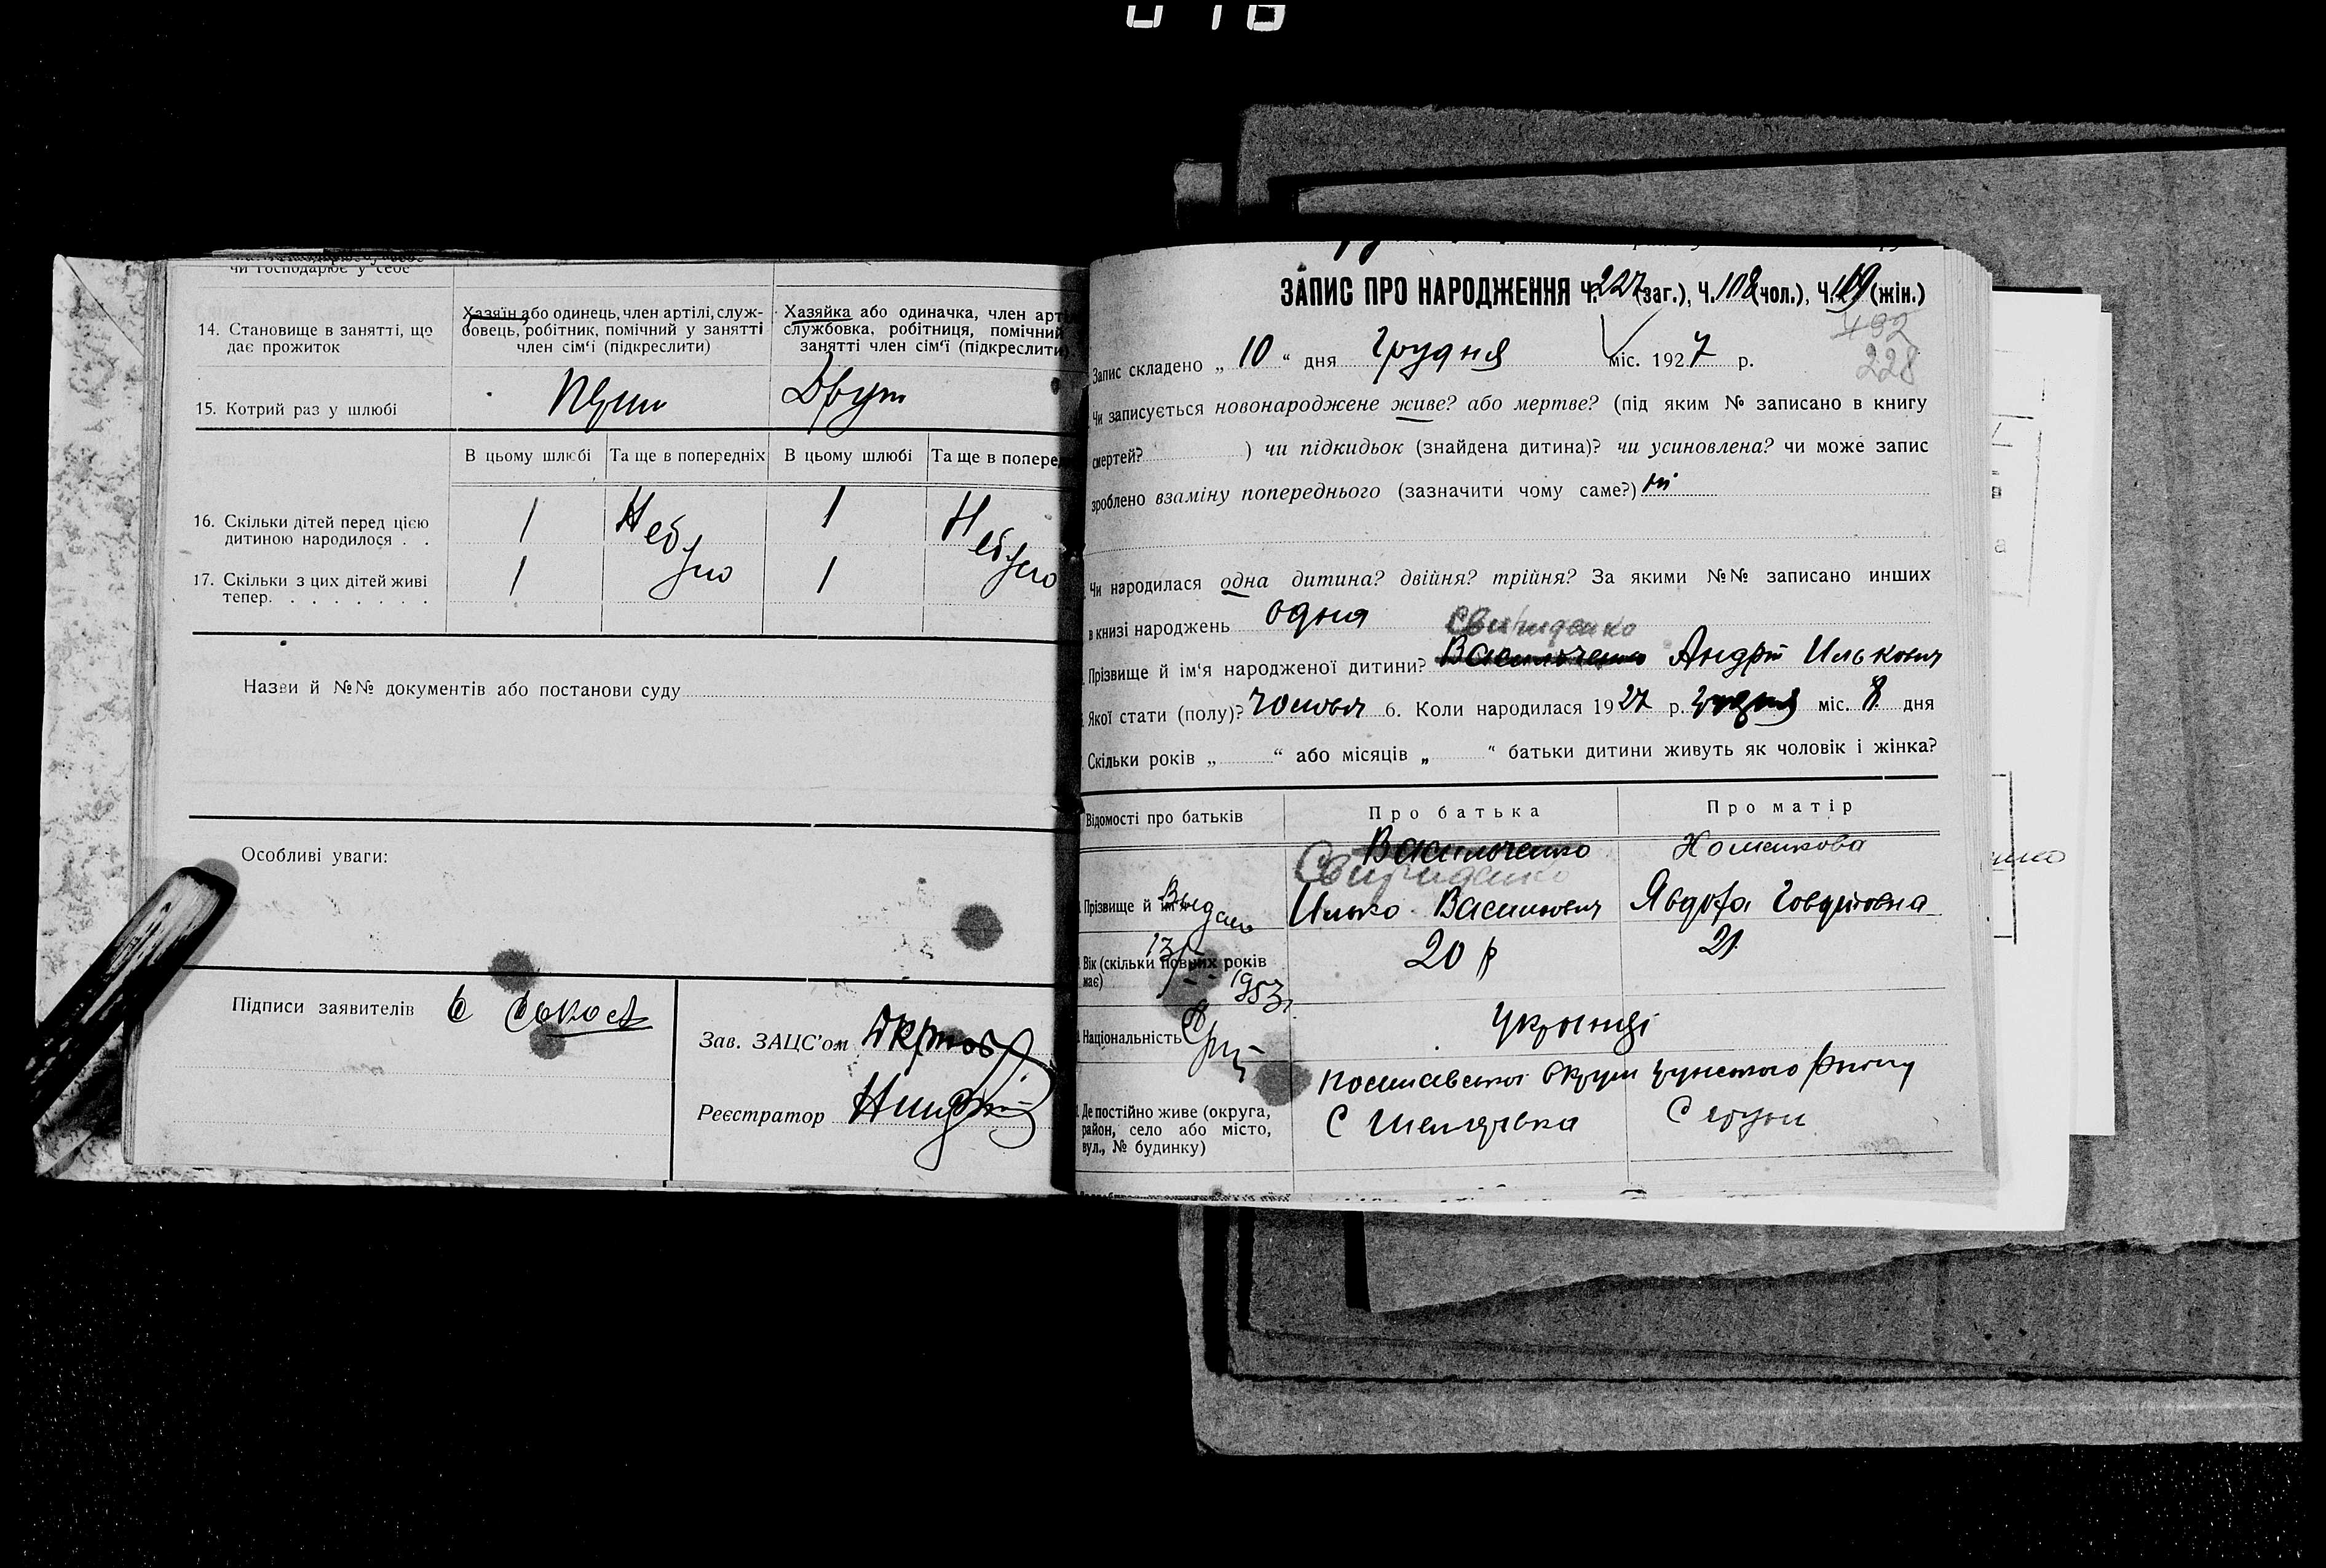 чи господарює у себе
14. Становище в занятті, що дає прожиток
Хазяїн або одинець, член артілі, служ-
бовець, робітник, помічний у занятті
член сім'ї (підкреслити)
Хазяйка або одиначка, член арт
службовка, робітниця, помічний
занятті член сім'ї (підкреслити)
15. Котрий раз у шлюбі
В цьому шлюбі Та ще в попередніх В цьому шлюбі Та ще в попере
16. Скільки дітей перед цією
дитиною народилося . .
1 Не було 1 Не було
17. Скільки з цих дітей живі
тепер. . . . . . . .
1 1
Назви й №№ документів або постанови суду
Особливі уваги:
Підписи заявителів
Зав. ЗАЦС'ом
Реєстратор
ЗАПИС ПРО НАРОДЖЕННЯ Ч. 227 (заг.), Ч. 108 (чол.), Ч. (жін.)
228
Запис складено „ 10 “ дня Грудня міс. 1927 р.
Чи записується новонароджене живе? або мертве? (під яким № записано в книгу
смертей? ) чи підкидьок (знайдена дитина)? чи усиновлена? чи може запис
зроблено взаміну попереднього (зазначити чому саме?) ні
Чи народилася одна дитина? двійня? трійня? За якими №№ записано инших
в книзі народжень одна
Свириденко
Прізвище й ім'я народженої дитини? Васильченко Андрій Илькович
Якої стати (полу)? 6. Коли народилася 1927 р. грудня міс. 8 дня
Скільки років „ “ або місяців „ “ батьки дитини живуть як чоловік і жінка?
Відомості про батьків Про батька Про матір
Васильченко
Свириденко
Прізвище й ім'я Илько Васильович Явдоха
Видано
Вік (скільки повних років
має)
20 р 21
1953
Національність Українці
Де постійно живе (округа,
район, село або місто,
вул., № будинку)
Полтавської Округи
С
С